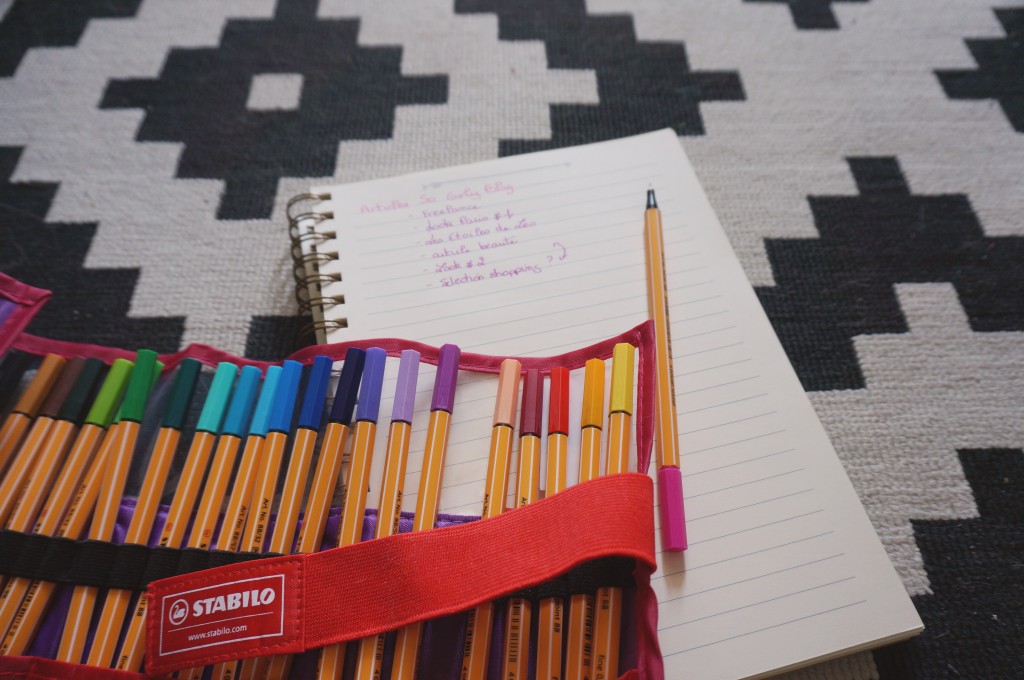 Articles So Girly Blog
- Freelance
- Look Paris # 1
- Les Etoiles de Leo
- article beauté
- Look # 2
- Selection shopping ?
STABILO
www.stabilo.com